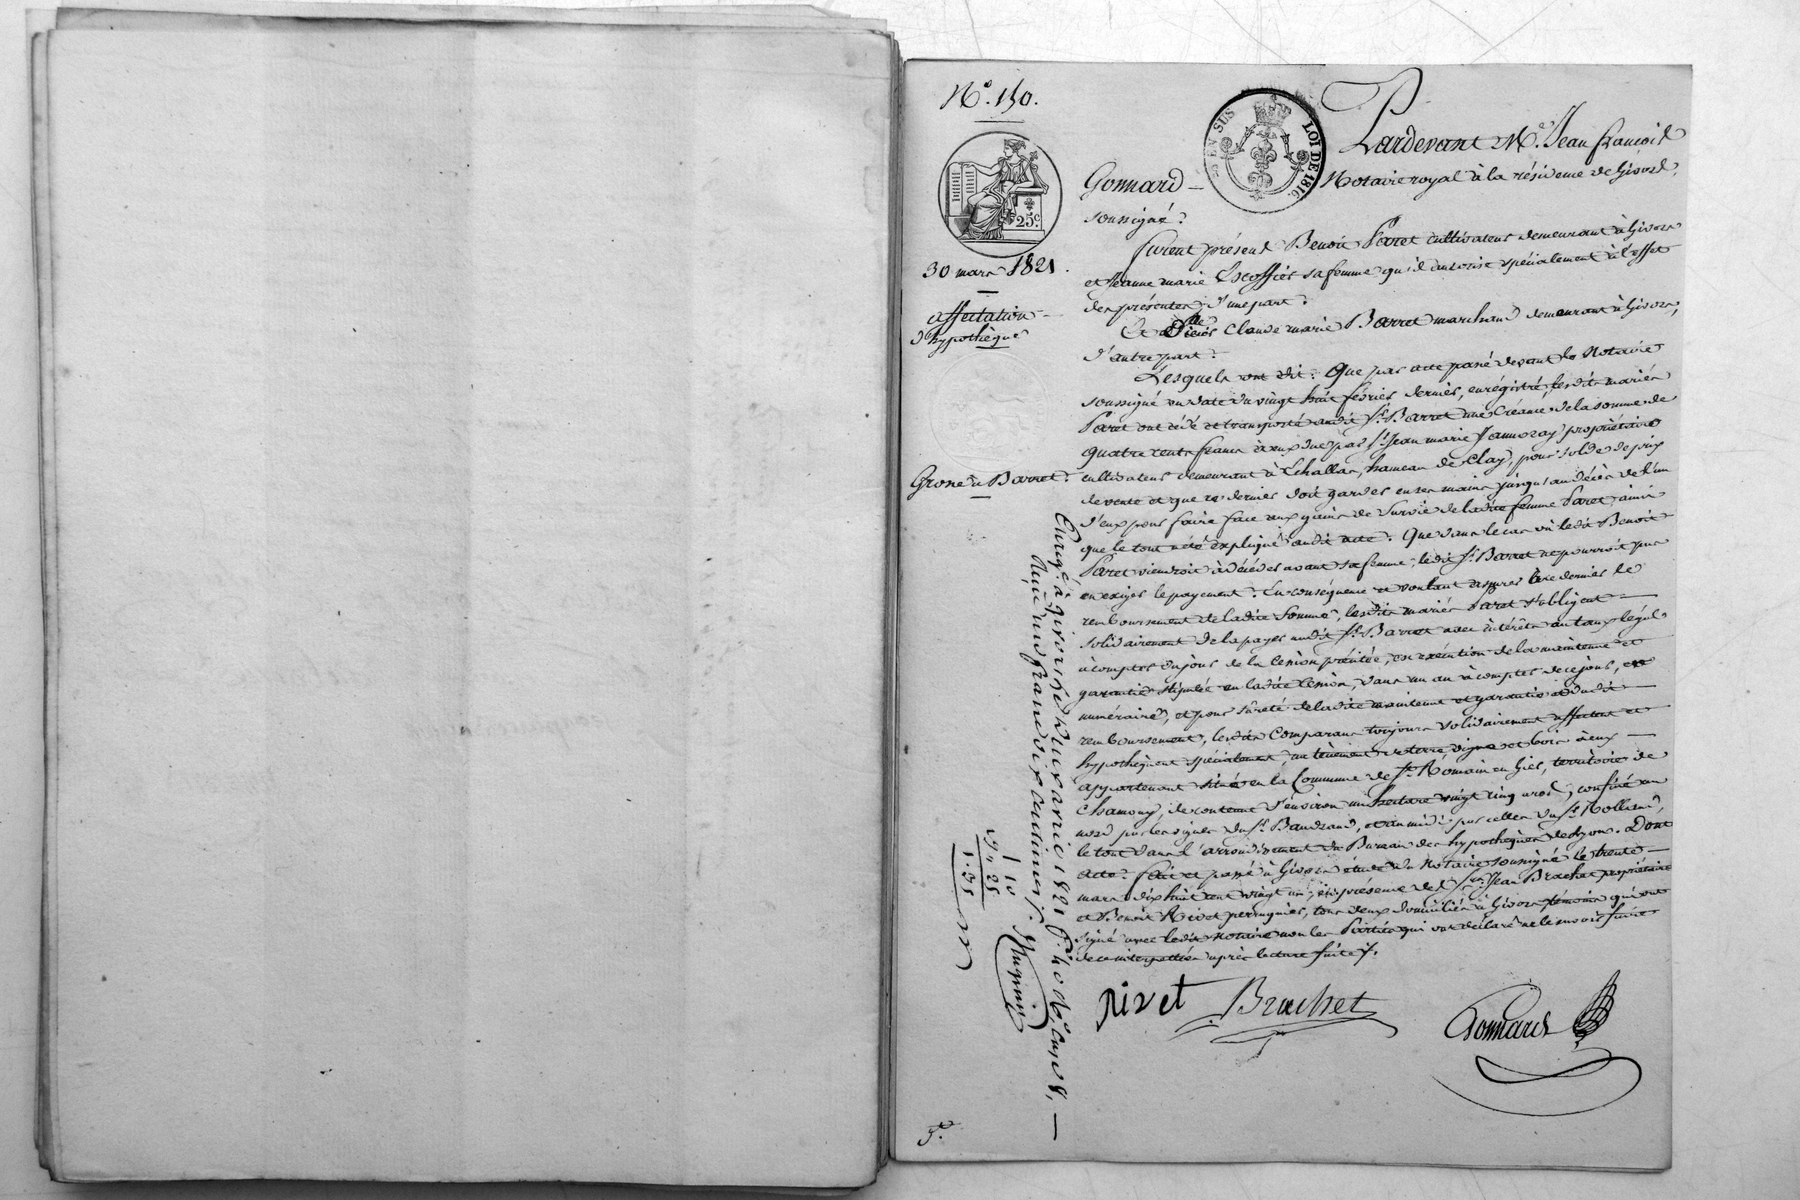 N.º 150.
5 EN SUS
LOI DE 1816
25.c
30 mars 1821.
affectation
d'hypothèque
Grosse à Barret.
Pardevant M.e Jean françois
Gonnard — Notaire royal à la résidence de Givors,
soussigné.
furent présens Benoit Paret cultivateur demeurant à Givors
et Jeanne marie Escoffier sa femme qu'il autorise spécialement à l'effet
des présentes, d'une part.
Et Claude marie Barret marchand demeurant à Givors,
d'autre part.
Lesquels ont dit: Que par acte passé devant le Notaire
soussigné en date du vingt huit février dernier, enregistré, lesdits mariés
Paret ont cédé et transporté audit Sr. Barret une Créance de la somme de
quatre cents francs à eux due par Sr. Jean marie propriétaire
cultivateur demeurant à Echallas, hameau de Clay, pour solde de prix
de vente et que ce dernier doit garder en ses mains jusqu'au décès de l'un
d'eux pour faire face aux gains de survie de ladite femme Paret, ainsi
que le tout a été expliqué audit acte. Que dans le cas où ledit Benoit
Paret viendroit à décéder avant sa femme, ledit Sr. Barret ne pourroit pas
en exiger le payement. En conséquence et voulant assurer à ce dernier le
remboursement de ladite somme, lesdits mariés Paret s'obligent —
solidairement de la payer audit Sr. Barret avec intérêts au taux légal
à compter du jour de la cession précitée, en exécution de la maintenue et
garantie stipulée en ladite cession, dans un an à compter de ce jour, en
numéraire, et pour sûreté de ladite maintenue et garantie et dudit —
remboursement, lesdits Comparans toujours solidairement affectent et
hypothèquent spécialement, un tènement de terre, vigne et bois à eux —
appartenant situé en la Commune de St. Romain en Gier, territoire de
Chamony, de contenue d'environ un hectare vingt cinq ares, confiné au
nord par les vignes du Sr. Baudrand, et au midi par celles du Sr. Rolland,
le tout dans l'arrondissement du Bureau des hypothèques de Lyon. Dont
acte. fait et passé à Givors étude du Notaire soussigné le trente —
mars dix huit cent vingt un; en présence des Srs. Jean Brachet propriétaire
et Benoit Rivet perruquier, tous deux domiciliés à Givors témoins qui ont
signé avec ledit Notaire non les Parties qui ont déclaré ne le savoir faire
de ce interpellés après lecture faite.
Enregé. à givors le deux avril 1821 f.o 40 v.o Case 8, —
Reçu deux francs dix centimes.
1 10
" 25
1.35
rivet Brachet Gonnard